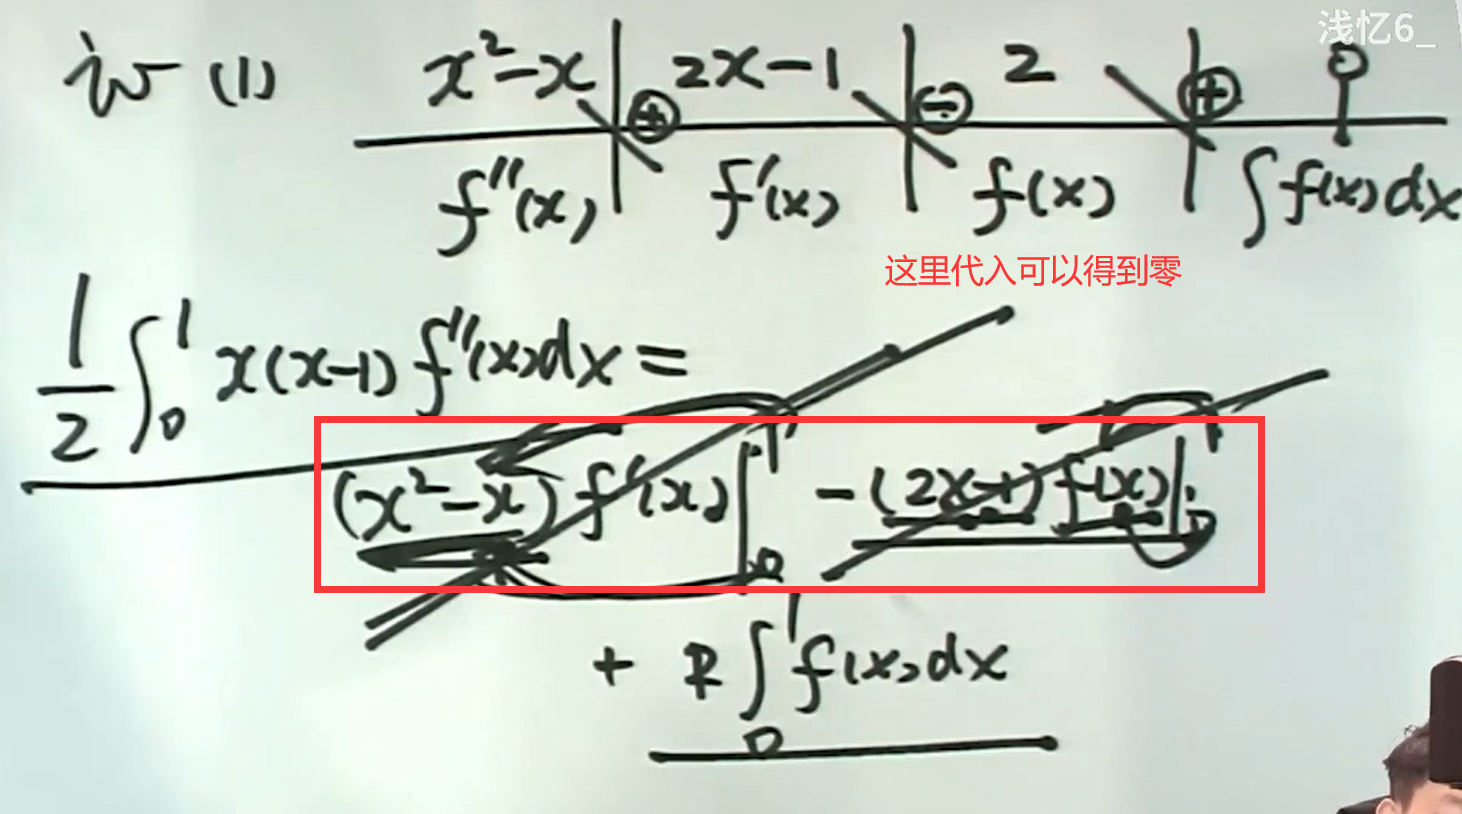 浅忆6_
证 (1) x²-x ⊕ 2x-1 ⊖ 2 ⊕ 0
f''(x) f'(x) f(x) ∫f(x)dx
这里代入可以得到零
1/2 ∫₀¹ x(x-1) f''(x)dx =
(x²-x) f'(x)|₀¹ - (2x-1) f(x)|₀¹
+ 2∫₀¹ f(x)dx